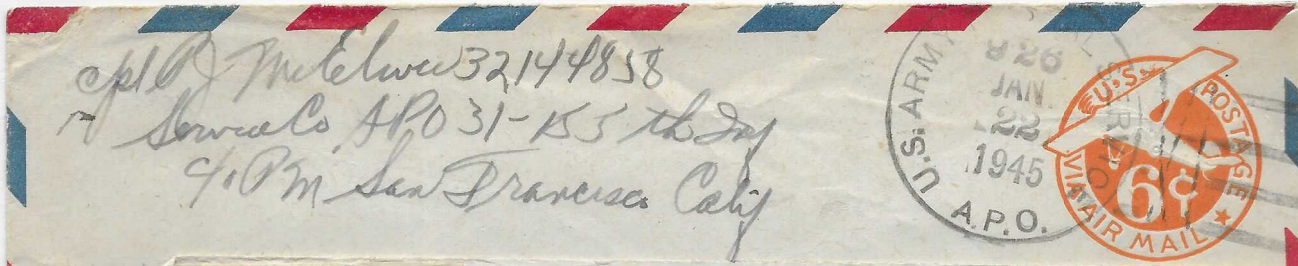 Cpl P J McElwee 32144858
Service Co APO 31-155th Inf
% PM San Francisco Calif
U.S. ARMY POSTAL SERVICE
A.P.O.
826
JAN
22
1945
U.S. POSTAGE
6¢
VIA AIR MAIL